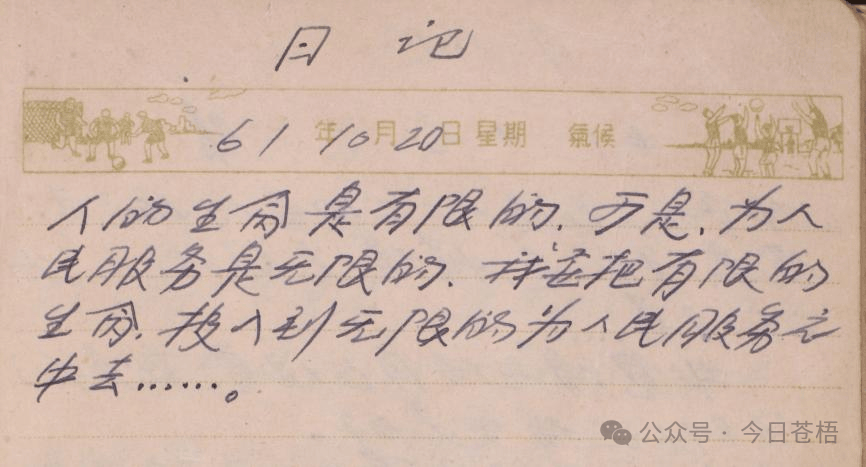 日记
61年10月20日 星期 氣候
人的生命是有限的.可是.为人
民服务是无限的.我要把有限的
生命.投入到无限的为人民服务之
中去……。
公众号·今日苍梧